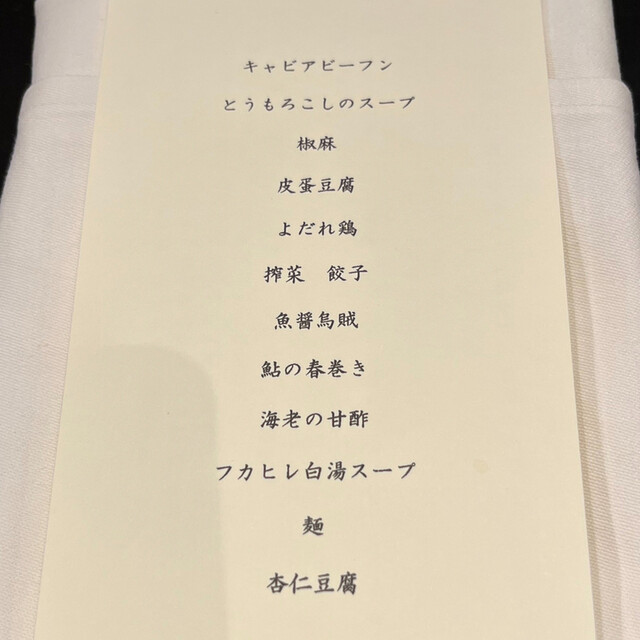 キャビアビーフン
とうもろこしのスープ
椒麻
皮蛋豆腐
よだれ鶏
搾菜　餃子
魚醤烏賊
鮎の春巻き
海老の甘酢
フカヒレ白湯スープ
麺
杏仁豆腐